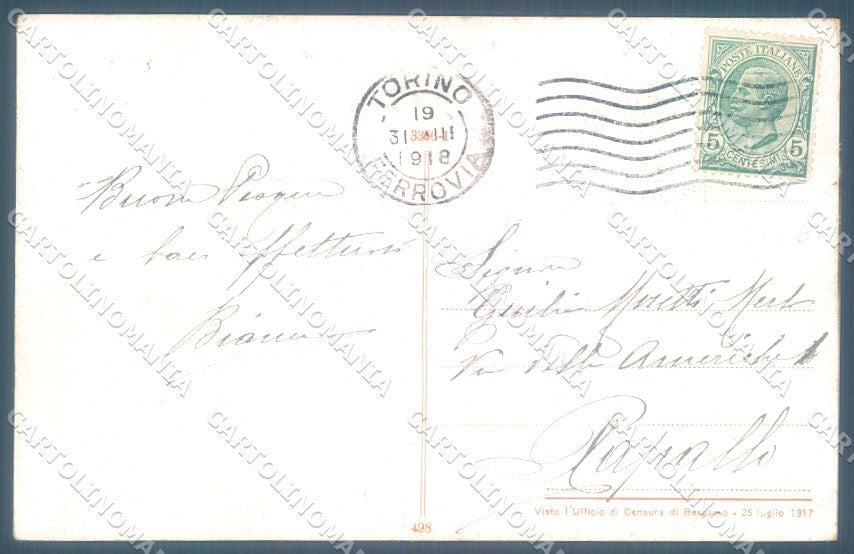 TORINO
19
31 III
1918
FERROVIA
POSTE ITALIANE
5 5
CENTESIMI
Buona Pasqua
e baci affettuosi
Bianca
Signora
Giulia Moretti
Via delle Americhe 1
Rapallo
Visto l'Ufficio di Censura di Bergamo - 25 luglio 1917
498
CARTOLINOMANIA